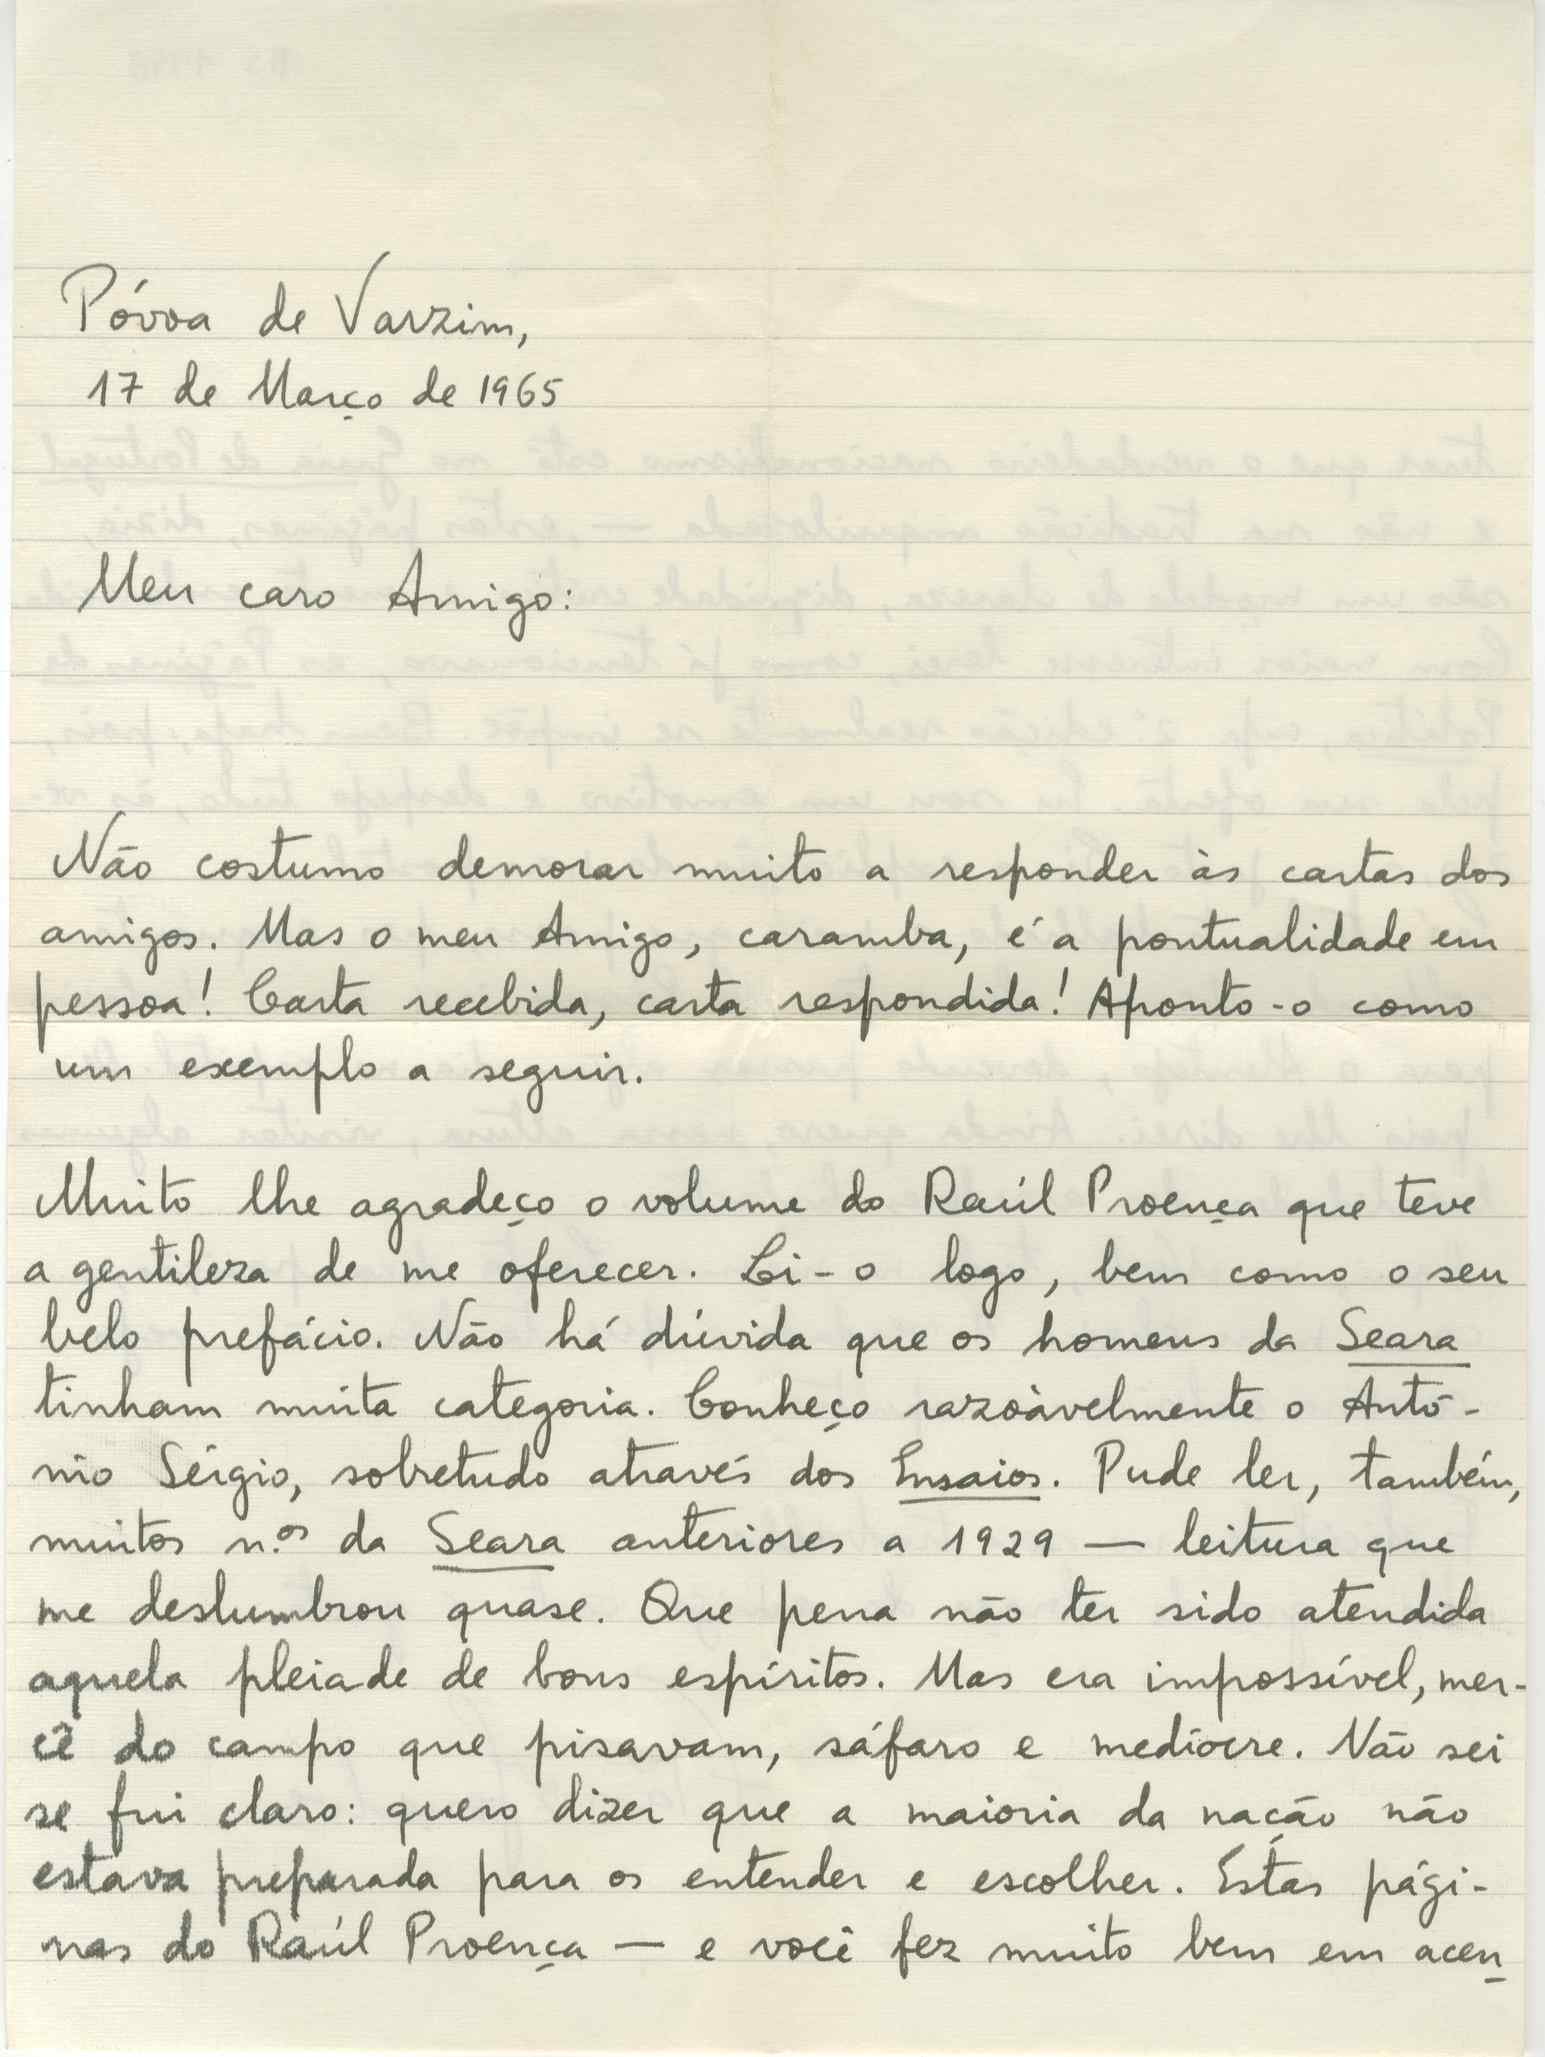 Póvoa de Varzim,
17 de Março de 1965
Meu caro Amigo:
Não costumo demorar muito a responder às cartas dos
amigos. Mas o meu Amigo, caramba, é a pontualidade em
pessoa! Carta recebida, carta respondida! Aponto-o como
um exemplo a seguir.
Muito lhe agradeço o volume do Raúl Proença que teve
a gentileza de me oferecer. Li-o logo, bem como o seu
belo prefácio. Não há dúvida que os homens da Seara
tinham muita categoria. Conheço razoàvelmente o Antó-
nio Sérgio, sobretudo através dos Ensaios. Pude ler, também,
muitos n.os da Seara anteriores a 1929 — leitura que
me deslumbrou quase. Que pena não ter sido atendida
aquela pleiade de bons espíritos. Mas era impossível, mer-
cê do campo que pisavam, sáfaro e medíocre. Não sei
se fui claro: quero dizer que a maioria da nação não
estava preparada para os entender e escolher. Estas pági-
nas do Raúl Proença — e você fez muito bem em acen